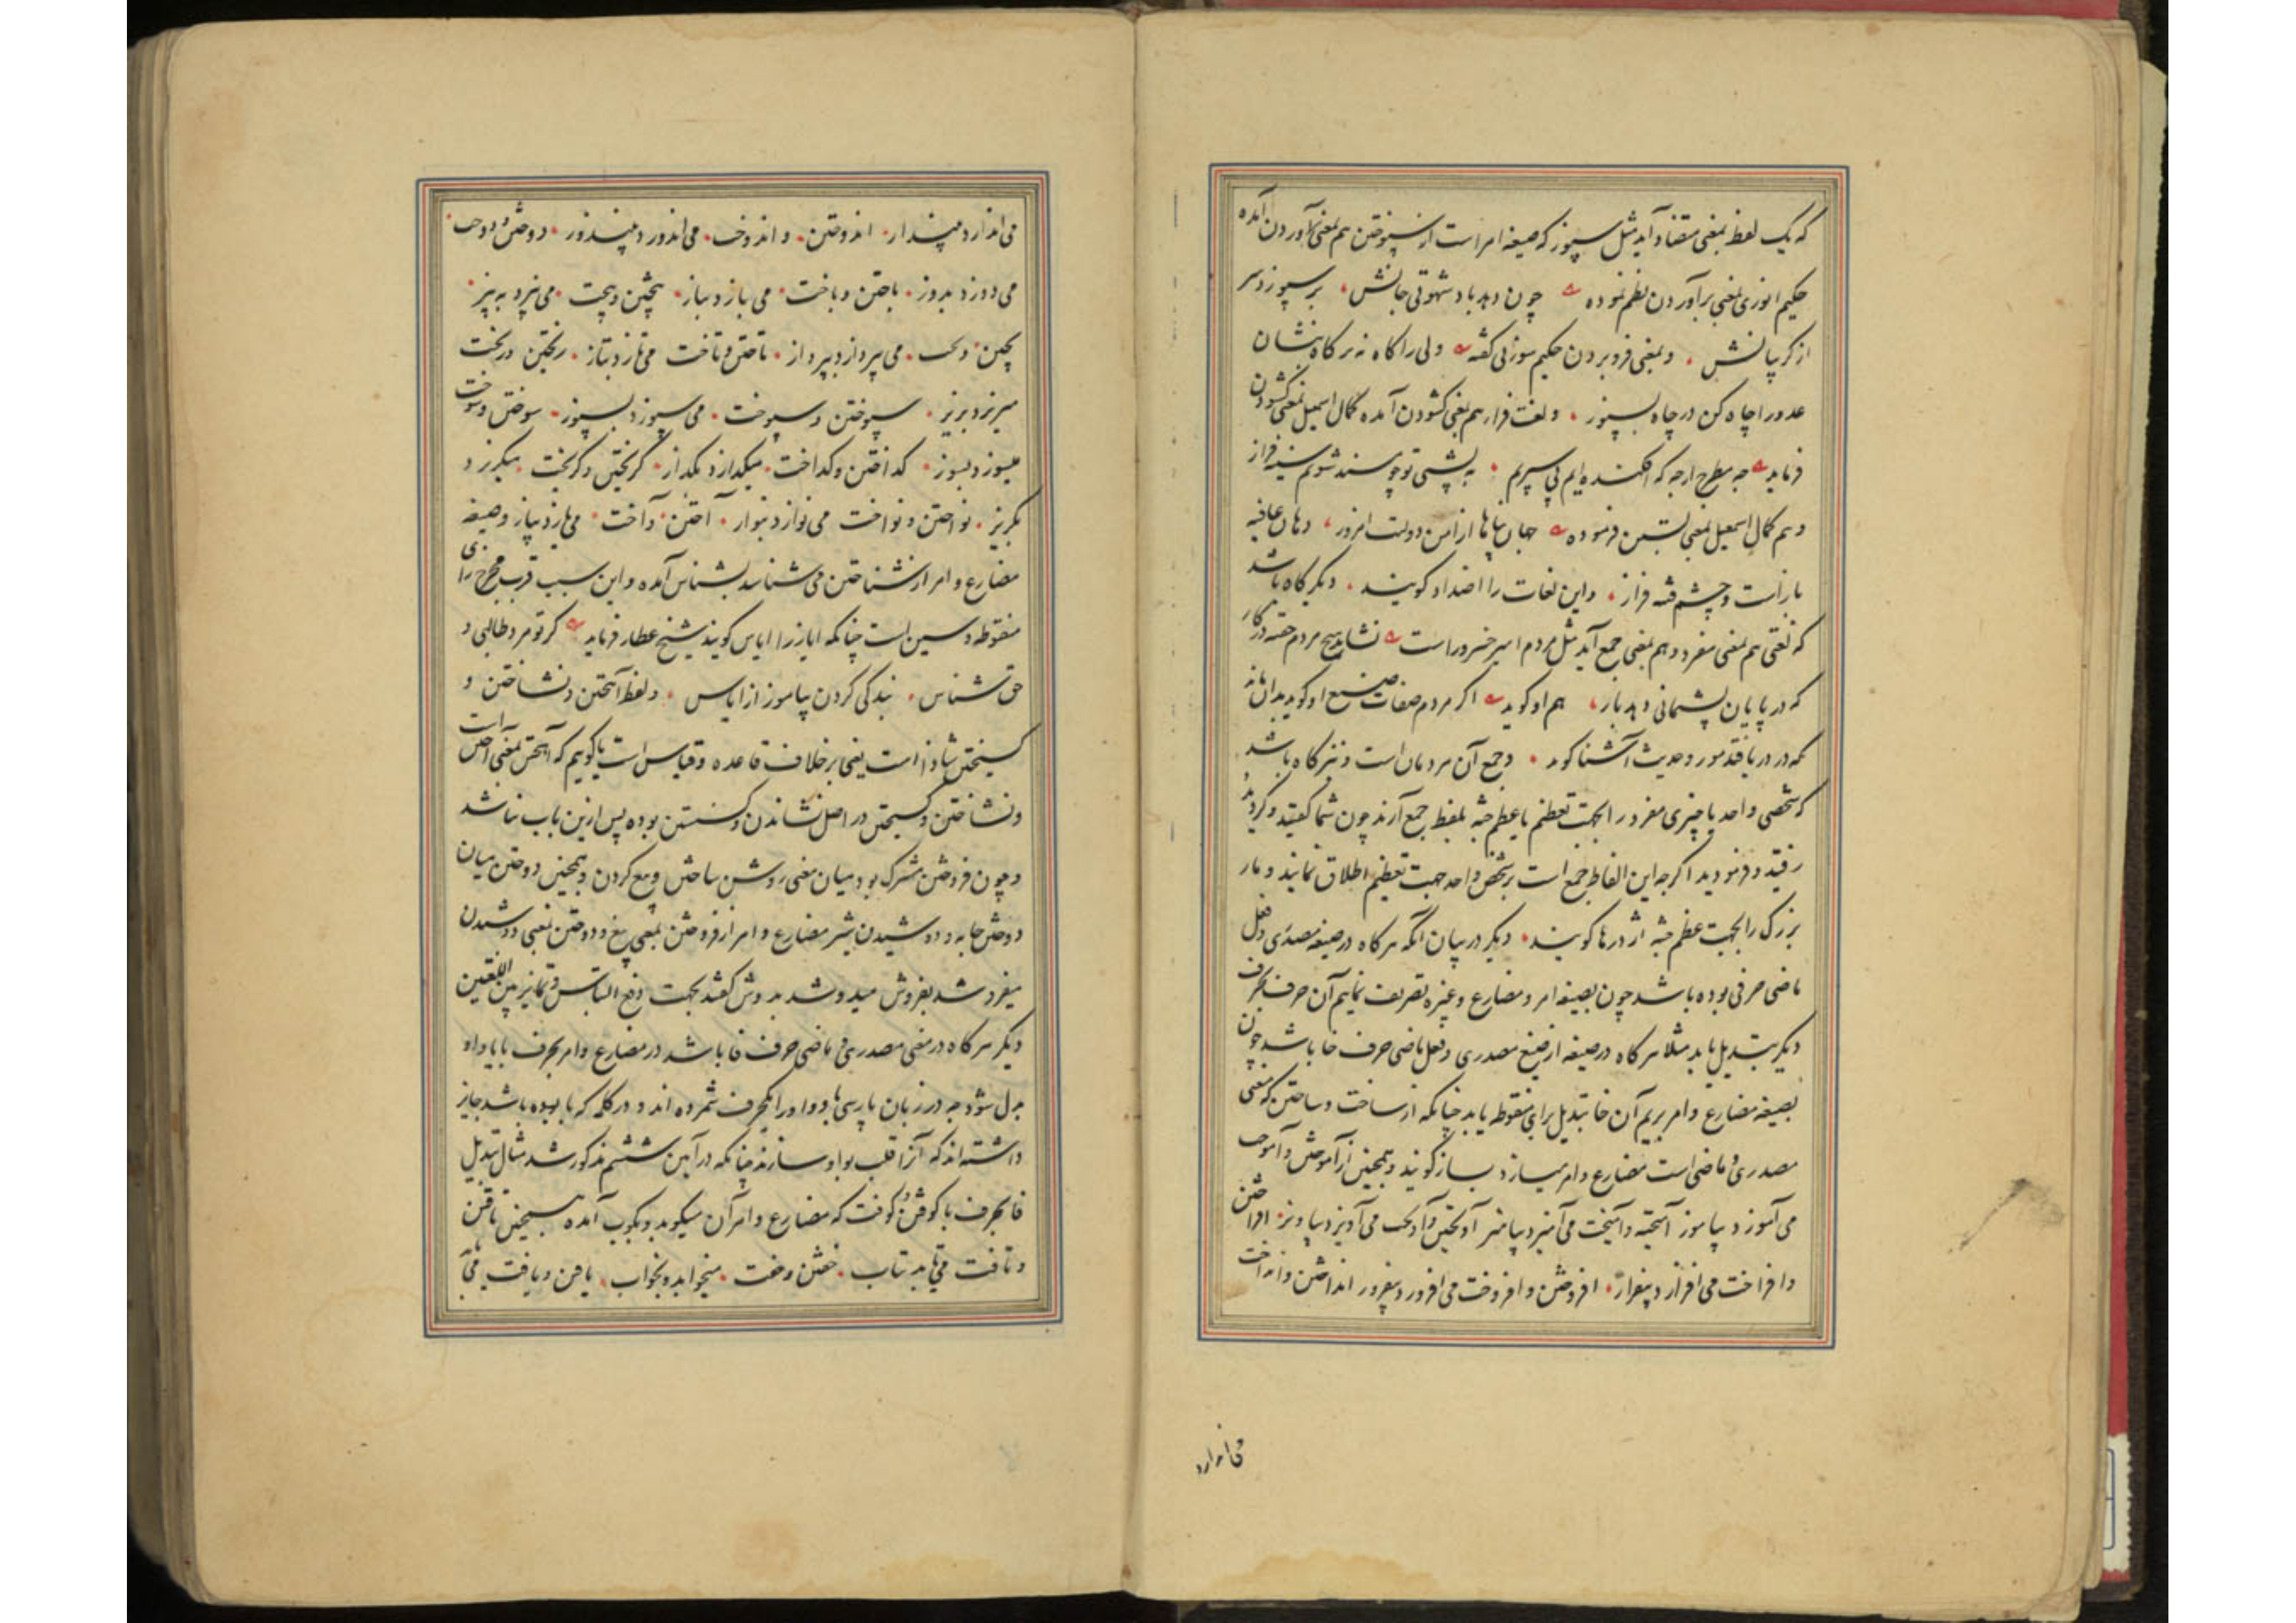 که یک لفظ بمعنی متضاد آید مثل سپوز که صیغه امر است از سپوختن هم بمعنی برآوردن آمده
حکیم انوری بمعنی برآوردن نظم نموده چون دهد باد شهوتی جانش برسپوزد سر
از گریبانش و بمعنی فرو بردن حکیم سوزنی گفته ولی را گاه نه بر گاه بنشان
عدو را چاه کن در چاه بسپوز و لغت فراز هم بمعنی گشودن آمده کمال اسمعیل بمعنی گشودن
فرماید به سطح ارچه که افکنده ایم پی سپریم به پشتی تو چو مسند شویم سینه فراز
و هم کمال اسمعیل بمعنی بستن فرموده جهان پناها از امن دولت امروز دهان عافیه
باز است و چشم فتنه فراز و این لغات را اضداد گویند دیگر گاه باشد
که لغتی هم بمعنی مفرد و هم بمعنی جمع آید مثل مردم امیر خسرو راست نشاید هیچ مردم خفته در کار
که در پایان پشیمانی دهد بار هم او گوید اگر مردم صفات صنع او گوید بدان ماند
که در دریا فتد مور و حدیث آشنا گوید و جمع آن مردمان است و نیز گاه باشد
که شخصی واحد یا چیزی مفرد را بجهت تعظیم یا عظم جثه بلفظ جمع آرند چون شما گفتید و کردید
رفتید و فرمودید اگرچه این الفاظ جمع است بر شخص واحد جهت تعظیم اطلاق نمایند و مار
بزرگ را بجهت عظم جثه اژدرها گویند دیگر در بیان آنکه هرگاه در صیغه مصدری و فعل
ماضی حرفی بوده باشد چون بصیغه امر و مضارع و غیره تصریف نمائیم آن حرف بحرف
دیگر تبدیل یابد مثلا هرگاه در صیغه از صیغ مصدری و فعل ماضی حرف خا باشد چون
بصیغه مضارع و امر بریم آن خا تبدیل بزای منقوطه یابد چنانکه از ساخت و ساختن که معنی
مصدری و ماضی است مضارع و امر میسازد بساز گویند و همچنین از آموختن و آموخت
می آموزد بیاموز آمیختن و آمیخت می آمیزد بیامیز آویختن و آویخت می آویزد بیاویز افراختن
و افراخت می افرازد بیفراز افروختن و افروخت می افروزد بیفروز انداختن و انداخت
می اندازد
می اندازد بینداز اندوختن و اندوخت می اندوزد بیندوز دوختن و دوخت
می دوزد بدوز باختن و باخت می بازد بباز پختن و پخت می پزد به پز
می پردازد بپرداز تاختن و تاخت می تازد بتاز ریختن و ریخت
میریزد بریز سپوختن و سپوخت می سپوزد بسپوز سوختن و سوخت
میسوزد بسوز گداختن و گداخت میگدازد بگداز گریختن و گریخت میگریزد
بگریز نواختن و نواخت می نوازد بنواز آختن و آخت می یازد بیاز و صیغه
مضارع و امر از شناختن می شناسد بشناس آمده و این سبب قرب مخرج زای
منقوطه و سین است چنانکه ایاز را ایاس گویند شیخ عطار فرماید گر تو مرد طالبی و
حق شناس بندگی کردن بیاموز از ایاس و لفظ آهیختن و نشاختن و
گسیختن شاذ است یعنی بر خلاف قاعده و قیاس است یا گوییم که آهیختن بمعنی آختن است
و نشاختن و گسیختن در اصل نشاندن و گسستن بوده پس ازین باب نباشد
و چون فروختن مشترک بود میان معنی روشن ساختن و بیع کردن و همچنین دوختن میان
دوختن جامه و دوشیدن شیر مضارع و امر از فروختن بمعنی بیع و دوختن بمعنی دوشیدن
میفروشد بفروش میدوشد بدوش گفتند بجهت دفع التباس و تمایز بین اللغتین
دیگر هرگاه در معنی مصدری و ماضی حرف فا باشد در مضارع و امر بحرف با یا واو
بدل شود چه در زبان پارسی با و واو را یکحرف شمرده اند و در کلمه که با بوده باشد جایز
داشته اند که آنرا قلب بواو سازند چنانکه در آیین ششم مذکور شد مثال تبدیل
فا بحرف با کوفتن و کوفت که مضارع و امر آن میکوبد و بکوب آمده همچنین تافتن
و تافت می تابد بتاب خفتن و خفت میخوابد و بخواب یافتن و یافت می یابد